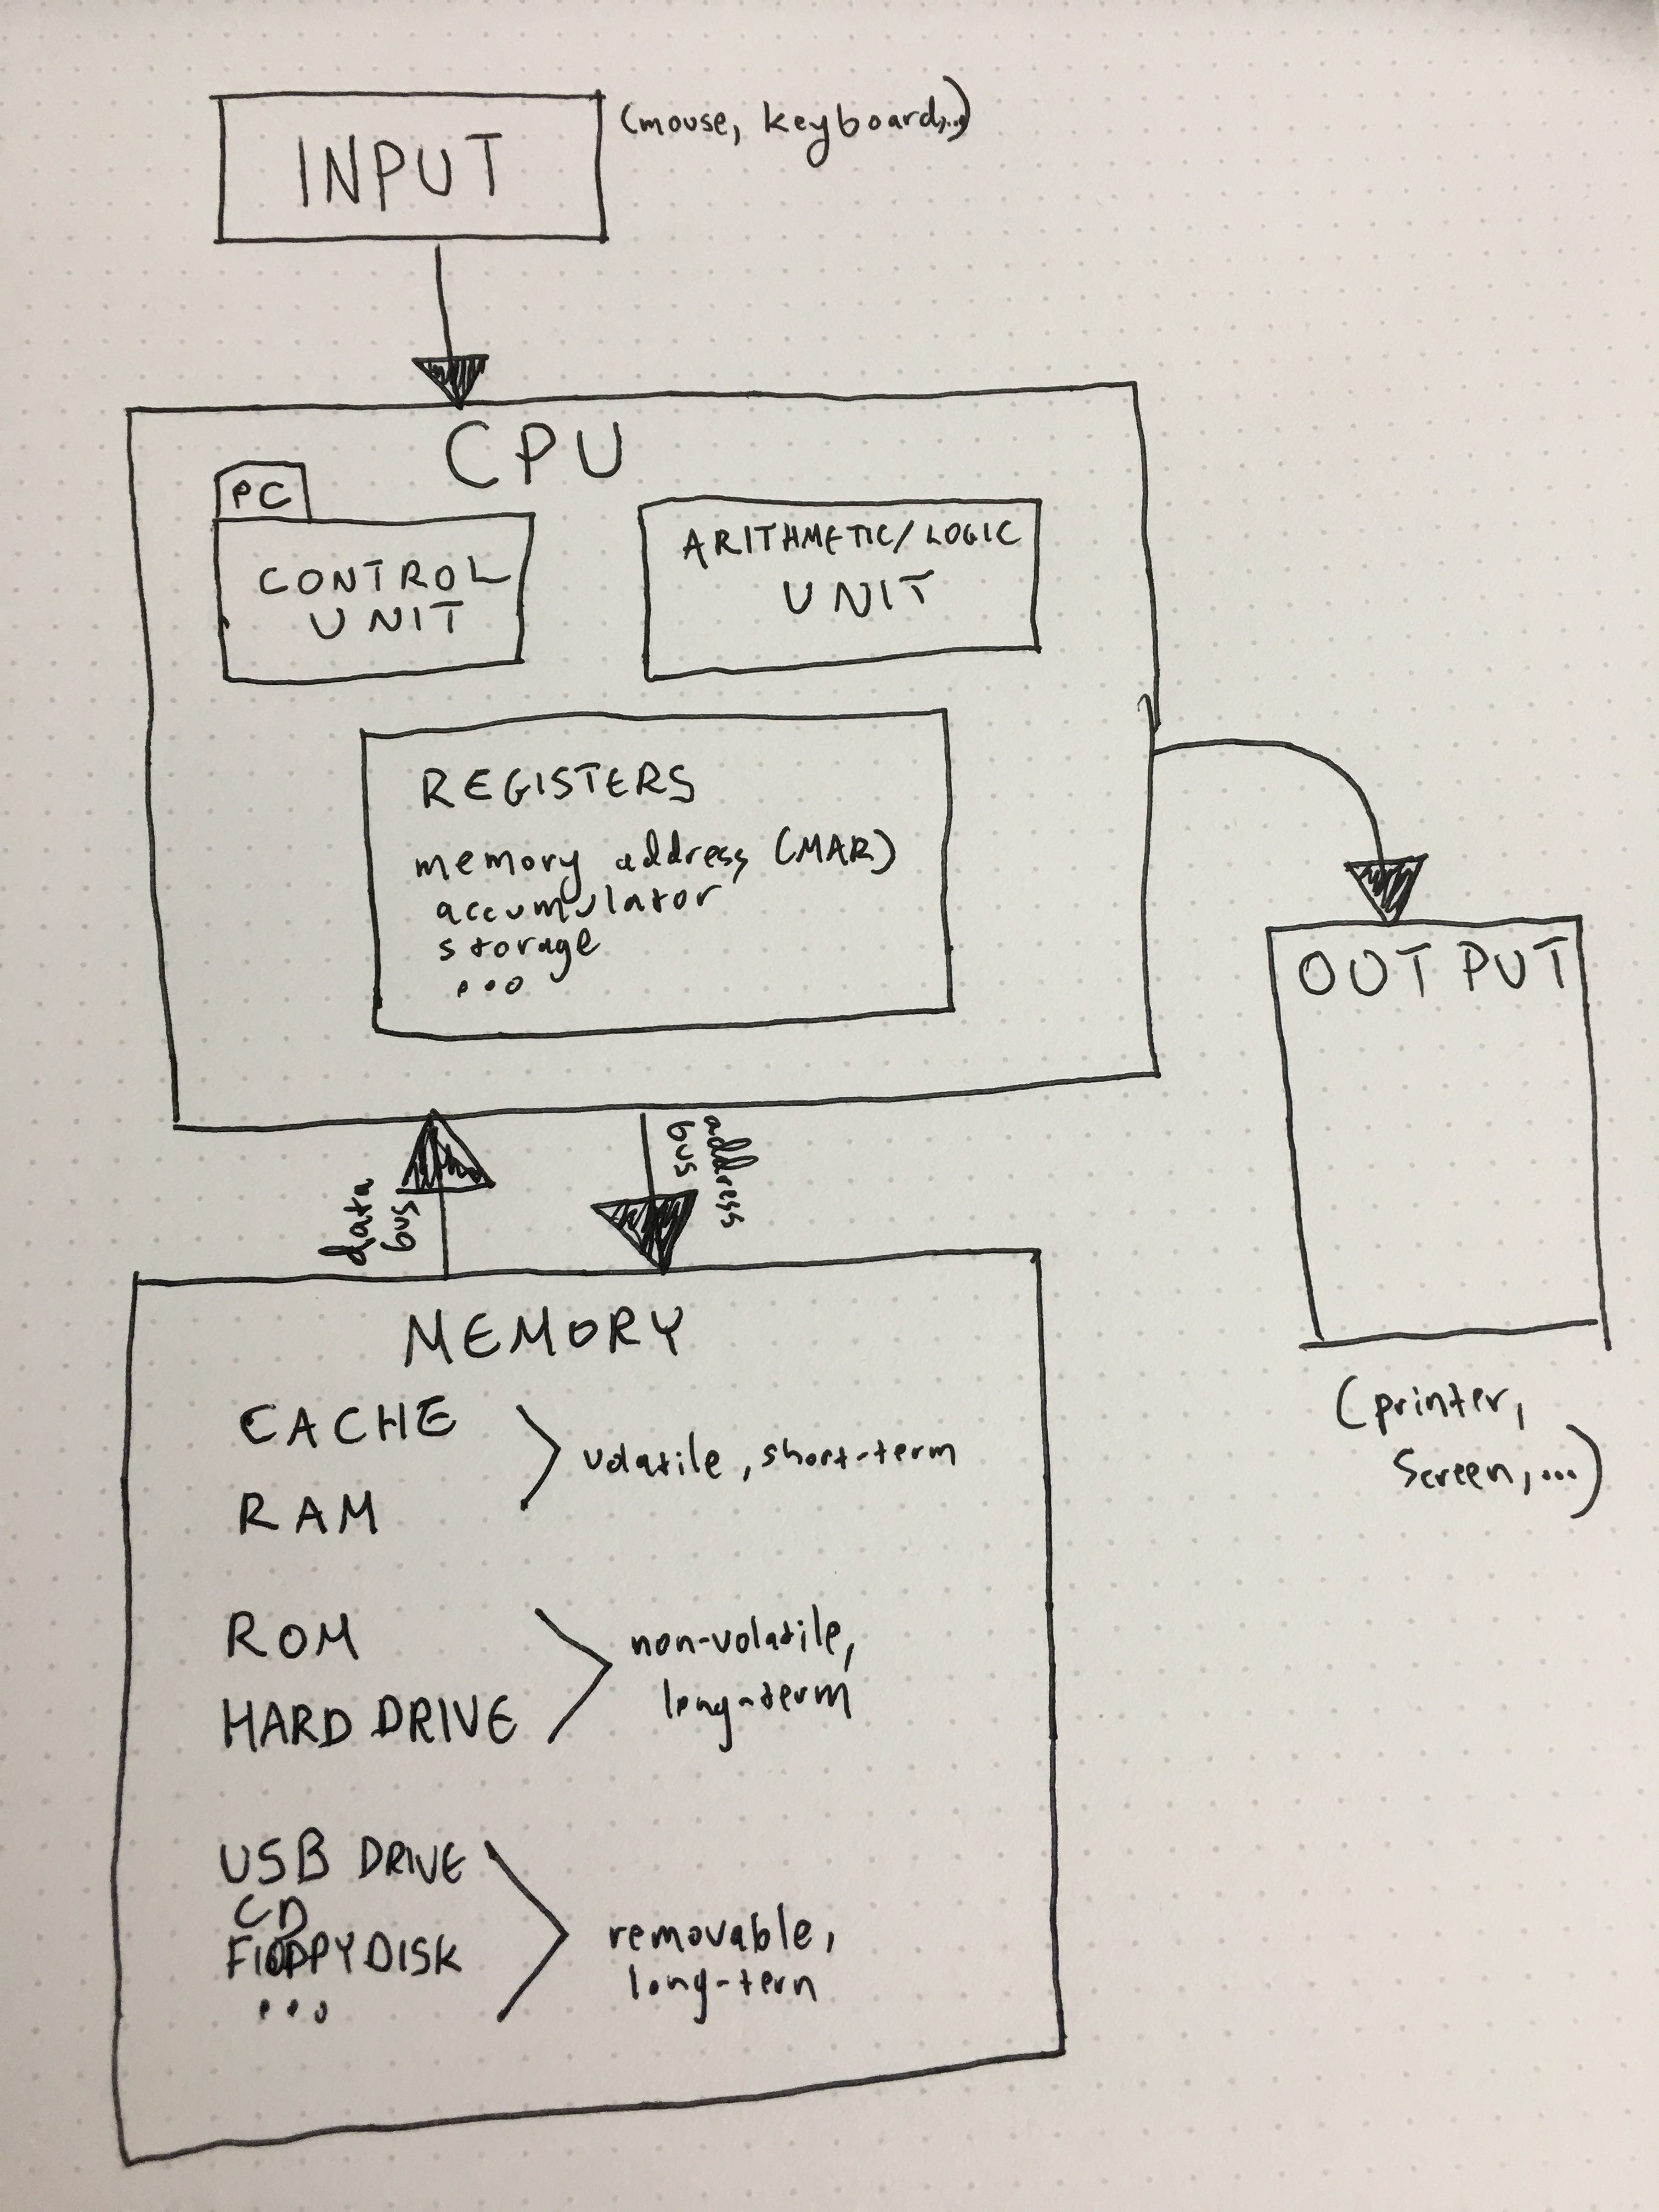 INPUT
(mouse, keyboard,...)
CPU
PC
CONTROL
UNIT
ARITHMETIC/LOGIC
UNIT
REGISTERS
memory address (MAR)
accumulator
storage
...
data
bus
address
bus
OUTPUT
(printer,
screen,...)
MEMORY
CACHE
RAM
volatile, short-term
ROM
HARD DRIVE
non-volatile,
long-term
USB DRIVE
CD
FLOPPY DISK
...
removable,
long-tern